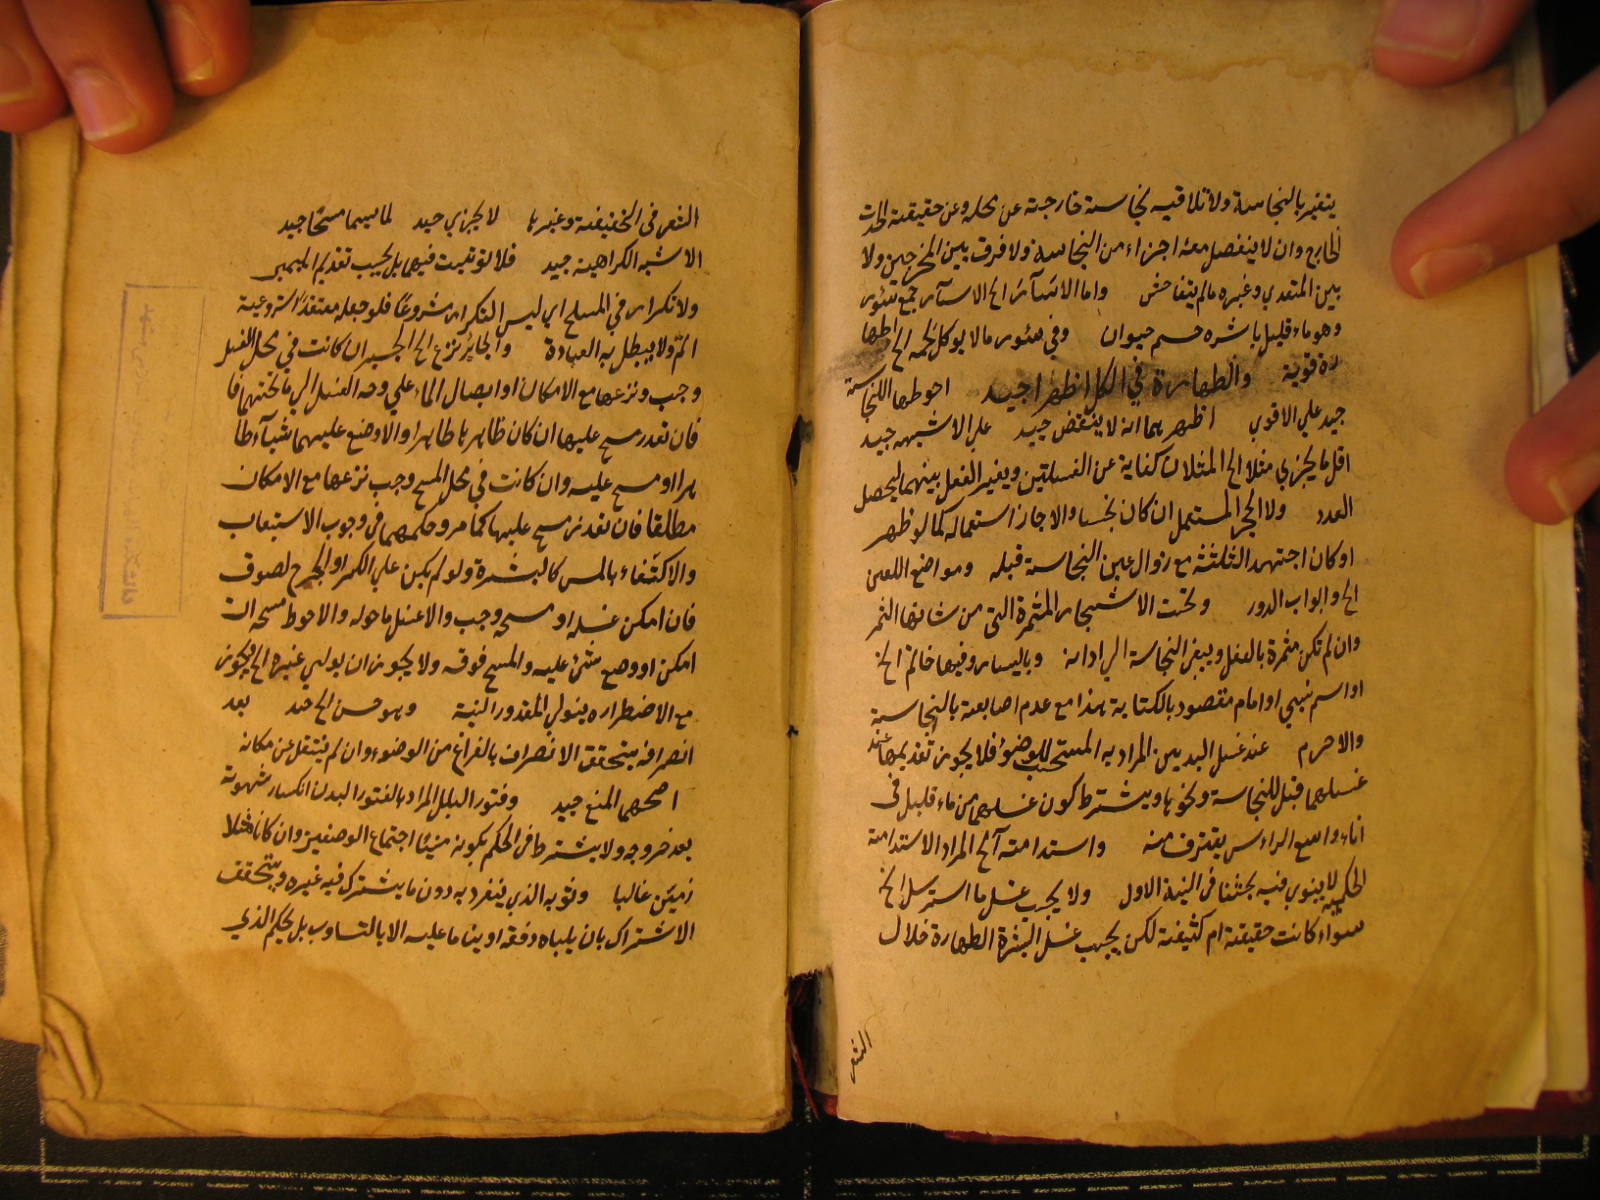 يتغير بالنجاسة ولا تلاقيه نجاسة خارجة عن محله وعن حقيقة الحدث
الخارج وان لا ينفصل معه اجزاء من النجاسة ولا فرق بين المخرجين ولا
بين المتعدي وغيره مالم يتفاحش واما الاسآر الخ الاسآر جمع سئور
وهو ماء قليل باشره جسم حيوان وفي سئور مالا يوكل لحمه الخ اطها
رة قوية والطهارة في الكل اظهر اجيد احوطها النجاسة
جيد علي الاقوي اظهرهما انه لا ينقض جيد علي الاشبه جيد
اقل ما يجزي مثلا الخ المثلان كناية عن الغسلتين ويغير الفعل بينهما ليحصل
العدد ولا الحجر المستعمل ان كان نجسا والاجاز استعماله كما لو طهر
او كان احتهد الثلثة مع زوال عين النجاسة قبله ومواضع اللعن
الخ وابواب الدور وتحت الاشجار المثمرة التي من شانها الثمر
وان لم تكن مثمرة بالفعل النجاسة وباليسار وفيها خاتم الخ
او اسم نبي او امام مقصود بالكتابة هذا مع عدم اصابعة بالنجاسة
والاحرم عند غسل اليدين المراد به المستحب للوضوء فلا يجوز تقديمها عند
غسلهما قبل للنجاسة ونحوها ويشترط كون غسلهما من ماء قليل في
اناء واسع الراس يغترف منه واستدامته الخ المراد الاستدامة
الحكمية لا ينوي فيه ولا يجب غسل ما استرسل الخ
سواء كانت حقيقة ام كثيفة لكن يجب غسل البشرة الطهارة خلال
الشعر
الشعر في الخفيفة وغيرها لا يجزي جيد لما يسما مسحا جيد
الاشبه الكراهية جيد فلا توقيت فيهما بل يجب تقديم اليمين
ولا تكرار في المسح اي ليس التكرار مشروعا فلو جعله معتقدا شروعية
اثم ولا يبطل به العبادة والجبائر تنزع الخ الجبيرة ان كانت في محل الغسل
وجب ونزعها مع الامكان او ايصال الماء علي وجه الغسل الي ما تحتهما فا
فان تعذر مسح عليها ان كان ظاهرها طاهرا والاوضع عليهما شيآء طا
هرا ومسح عليه وان كانت في محل المسح وجب نزعها مع الامكان
مطلقا فان تعذر مسح عليها كما مر وحكمهما في وجوب الاستيعاب
والاكتفاء بالمس كالبشرة ولو لم يكن علي الكسر او الجرح لصوق
فان امكن غسله او مسحه وجب والا غسل ما حوله والاحوط مسحه ان
امكن او وضع شئ عليه والمسح فوقه ولا يجوز ان يولي غيره الخ فيجوز
مع الاضطرار ه ينولي المقدور النية وهو حسن الخ جيد بعد
انصرافه يتحقق الانصراف بالفراغ من الوضوء وان لم ينتقل عن مكانه
اصحهما المنع جيد وفتور البلل المراد بالفتور البدن انكسار شهوته
بعد خروجه ولا يشترط في الحكم بكونه منيا اجتماع الوصفين وان كانا متلا
زمين غالبا وثوبه الذي ينفرد به دون ما يشترك فيه غيره ويتحقق
الاشتراك بان يلبساه دفعة او يناما عليه الا بالتناوب بل يحكم الذي